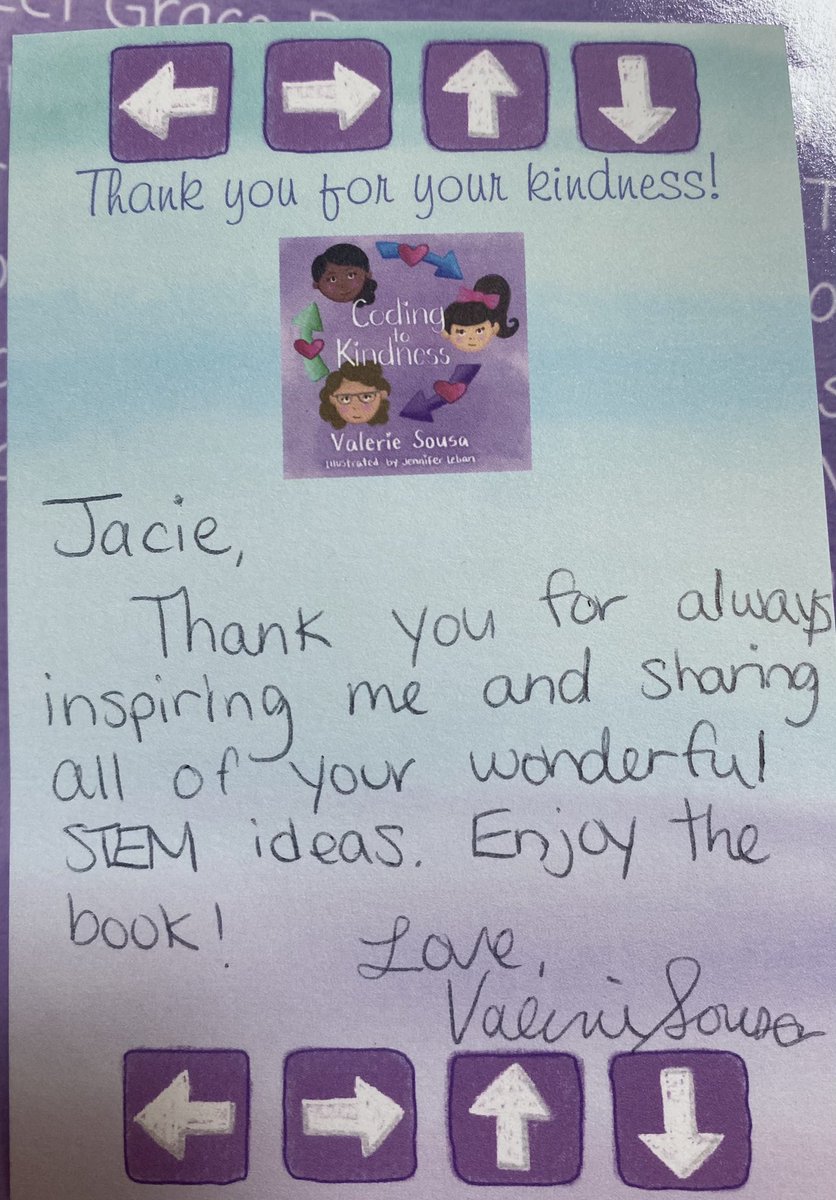 Thank you for your kindness!
Coding
to
Kindness
Valerie Sousa
Illustrated by Jennifer Leban
Jacie,
Thank you for always
inspiring me and sharing
all of your wonderful
STEM ideas. Enjoy the
book!
Love,
Valerie Sousa